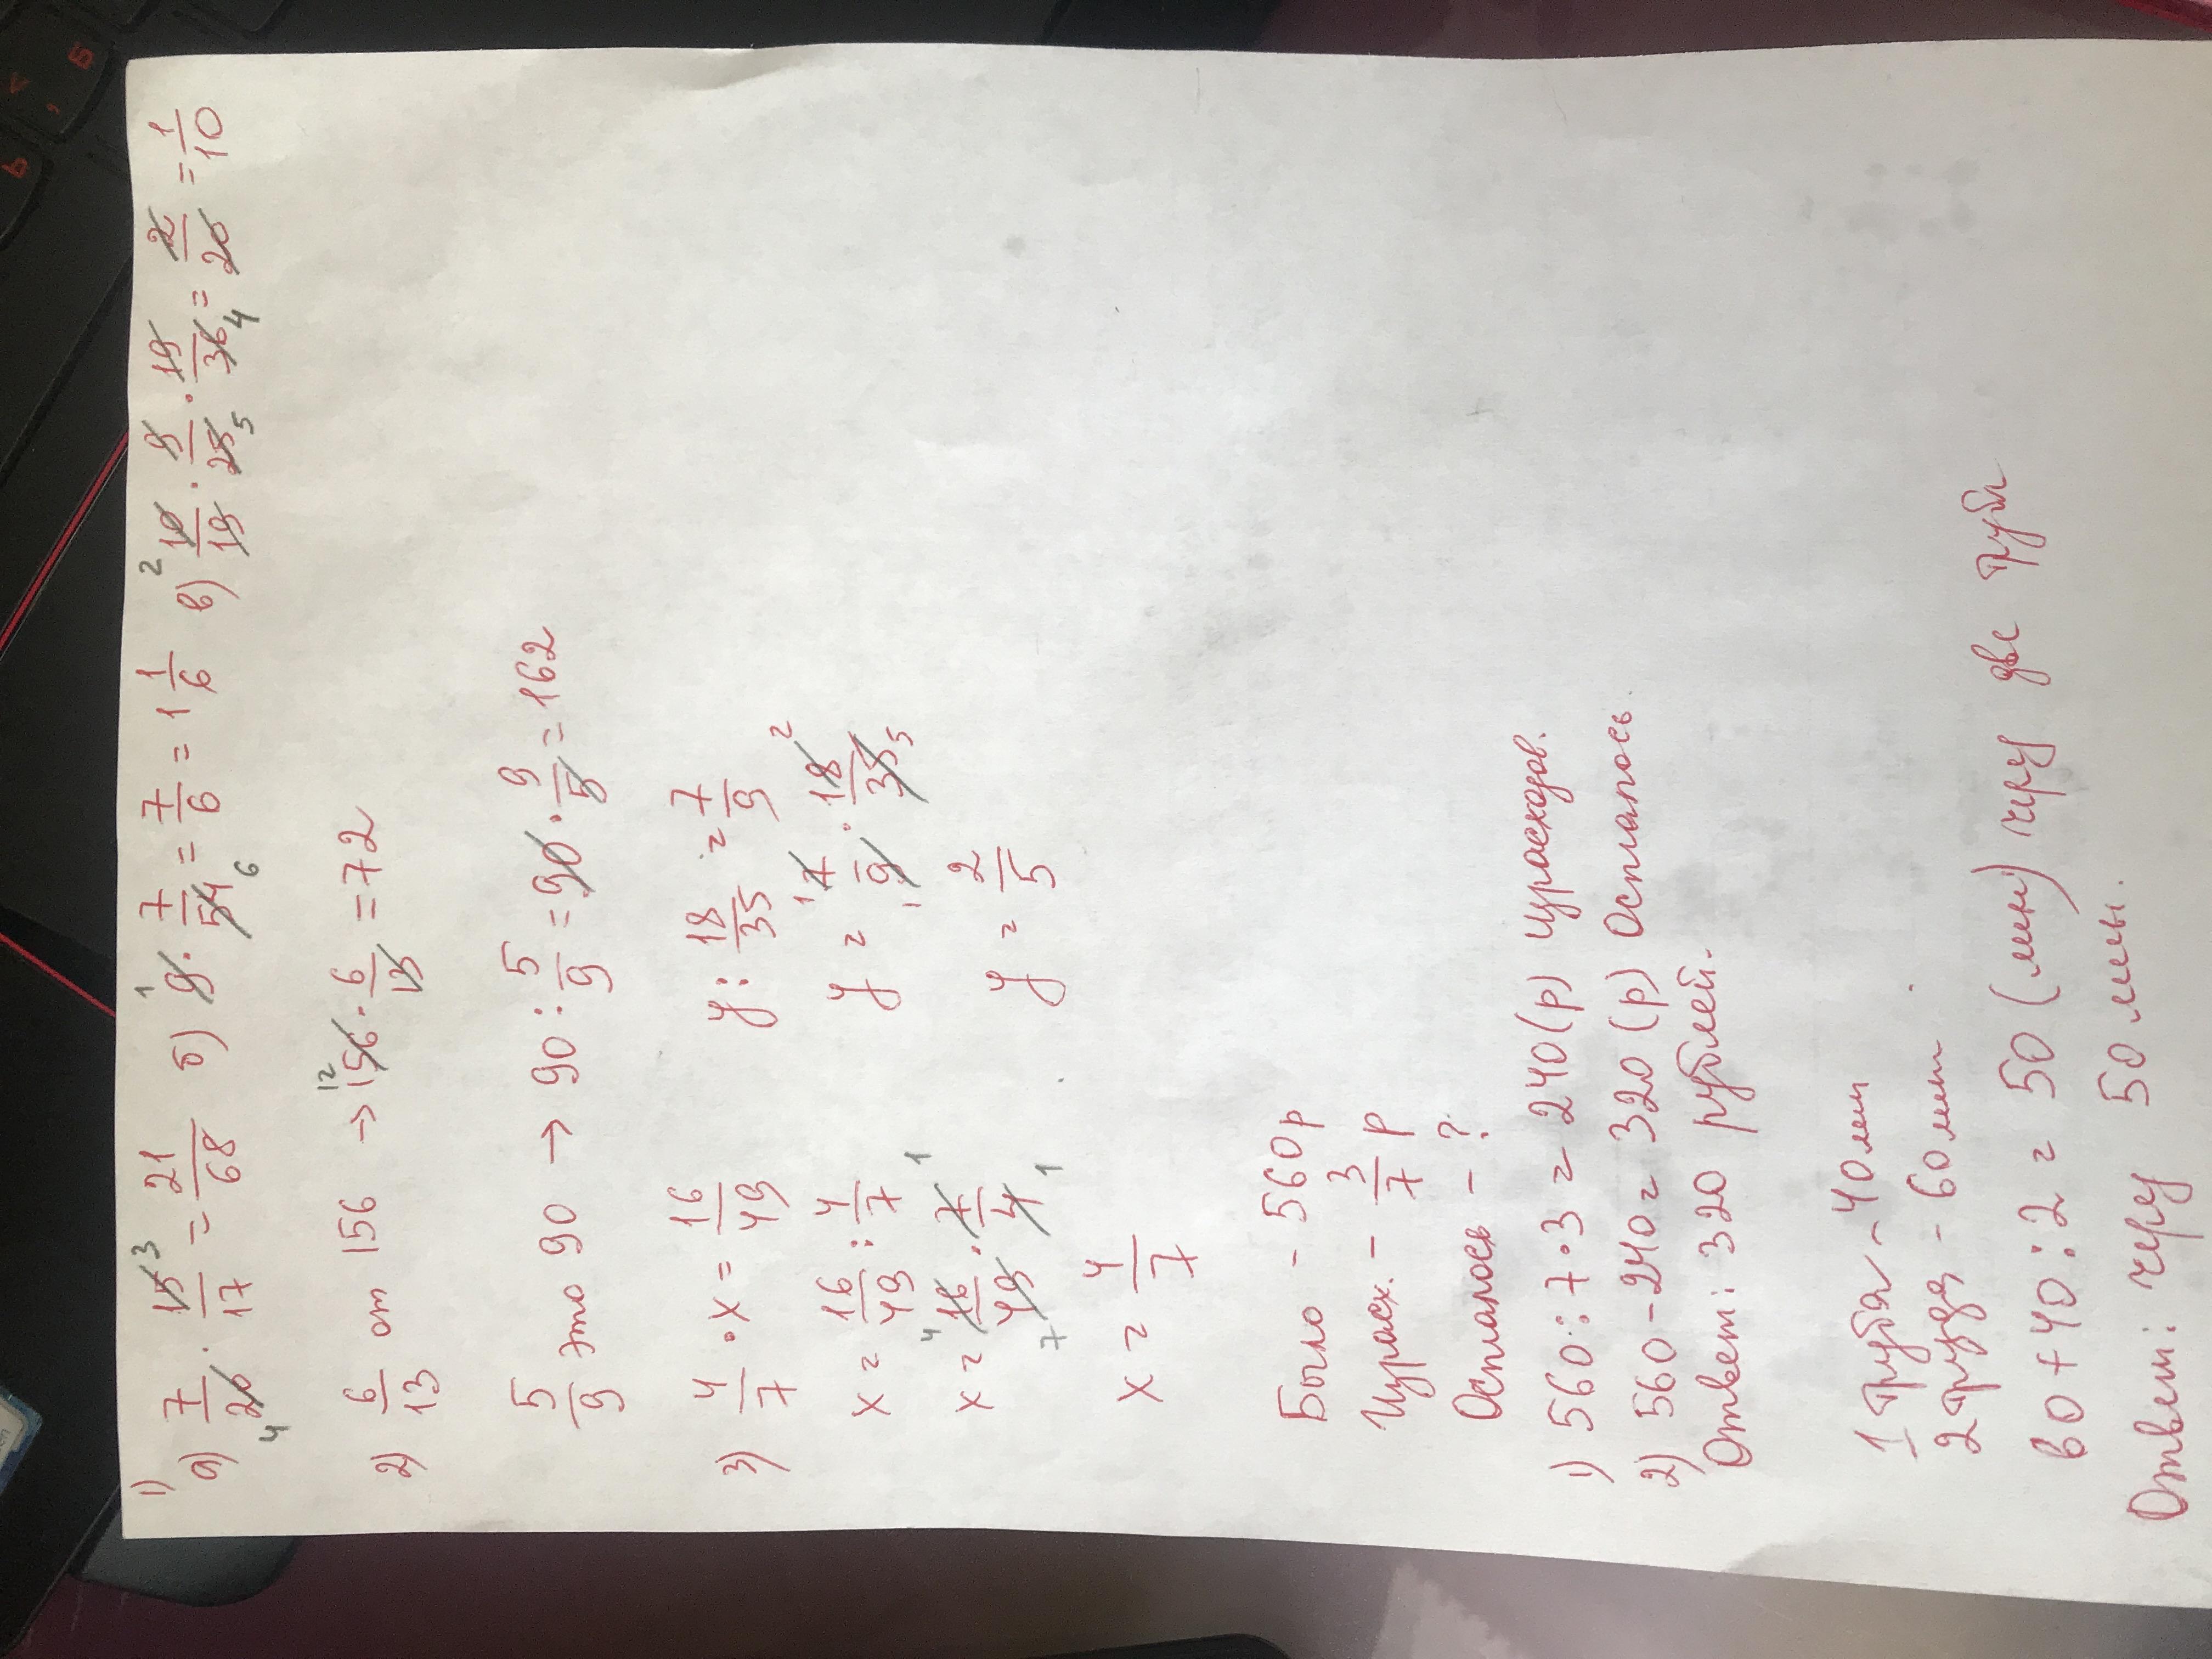 1)
а) 7/20 · 15/17 = 21/68 б) 9 · 7/54 = 7/6 = 1 1/6 в) 10/19 · 9/25 · 19/36 = 2/20 = 1/10
2) 6/13 от 156 → 156 · 6/13 = 72
5/9 это 90 → 90 : 5/9 = 90 · 9/5 = 162
3) 4/7 · x = 16/49 y : 18/35 = 7/9
x = 16/49 : 4/7 y = 7/9 · 18/35
x = 16/49 · 7/4 y = 2/5
x = 4/7
Было - 560 р
Израсх. - 3/7 р
Осталось - ?
1) 560 : 7 · 3 = 240 (р) израсходов.
2) 560 - 240 = 320 (р) Осталось.
Ответ: 320 рублей.
1 труба - 40 мин
2 труба - 60 мин
60 + 40 : 2 = 50 (мин) чрез две трубы
Ответ: чрез 50 мин.